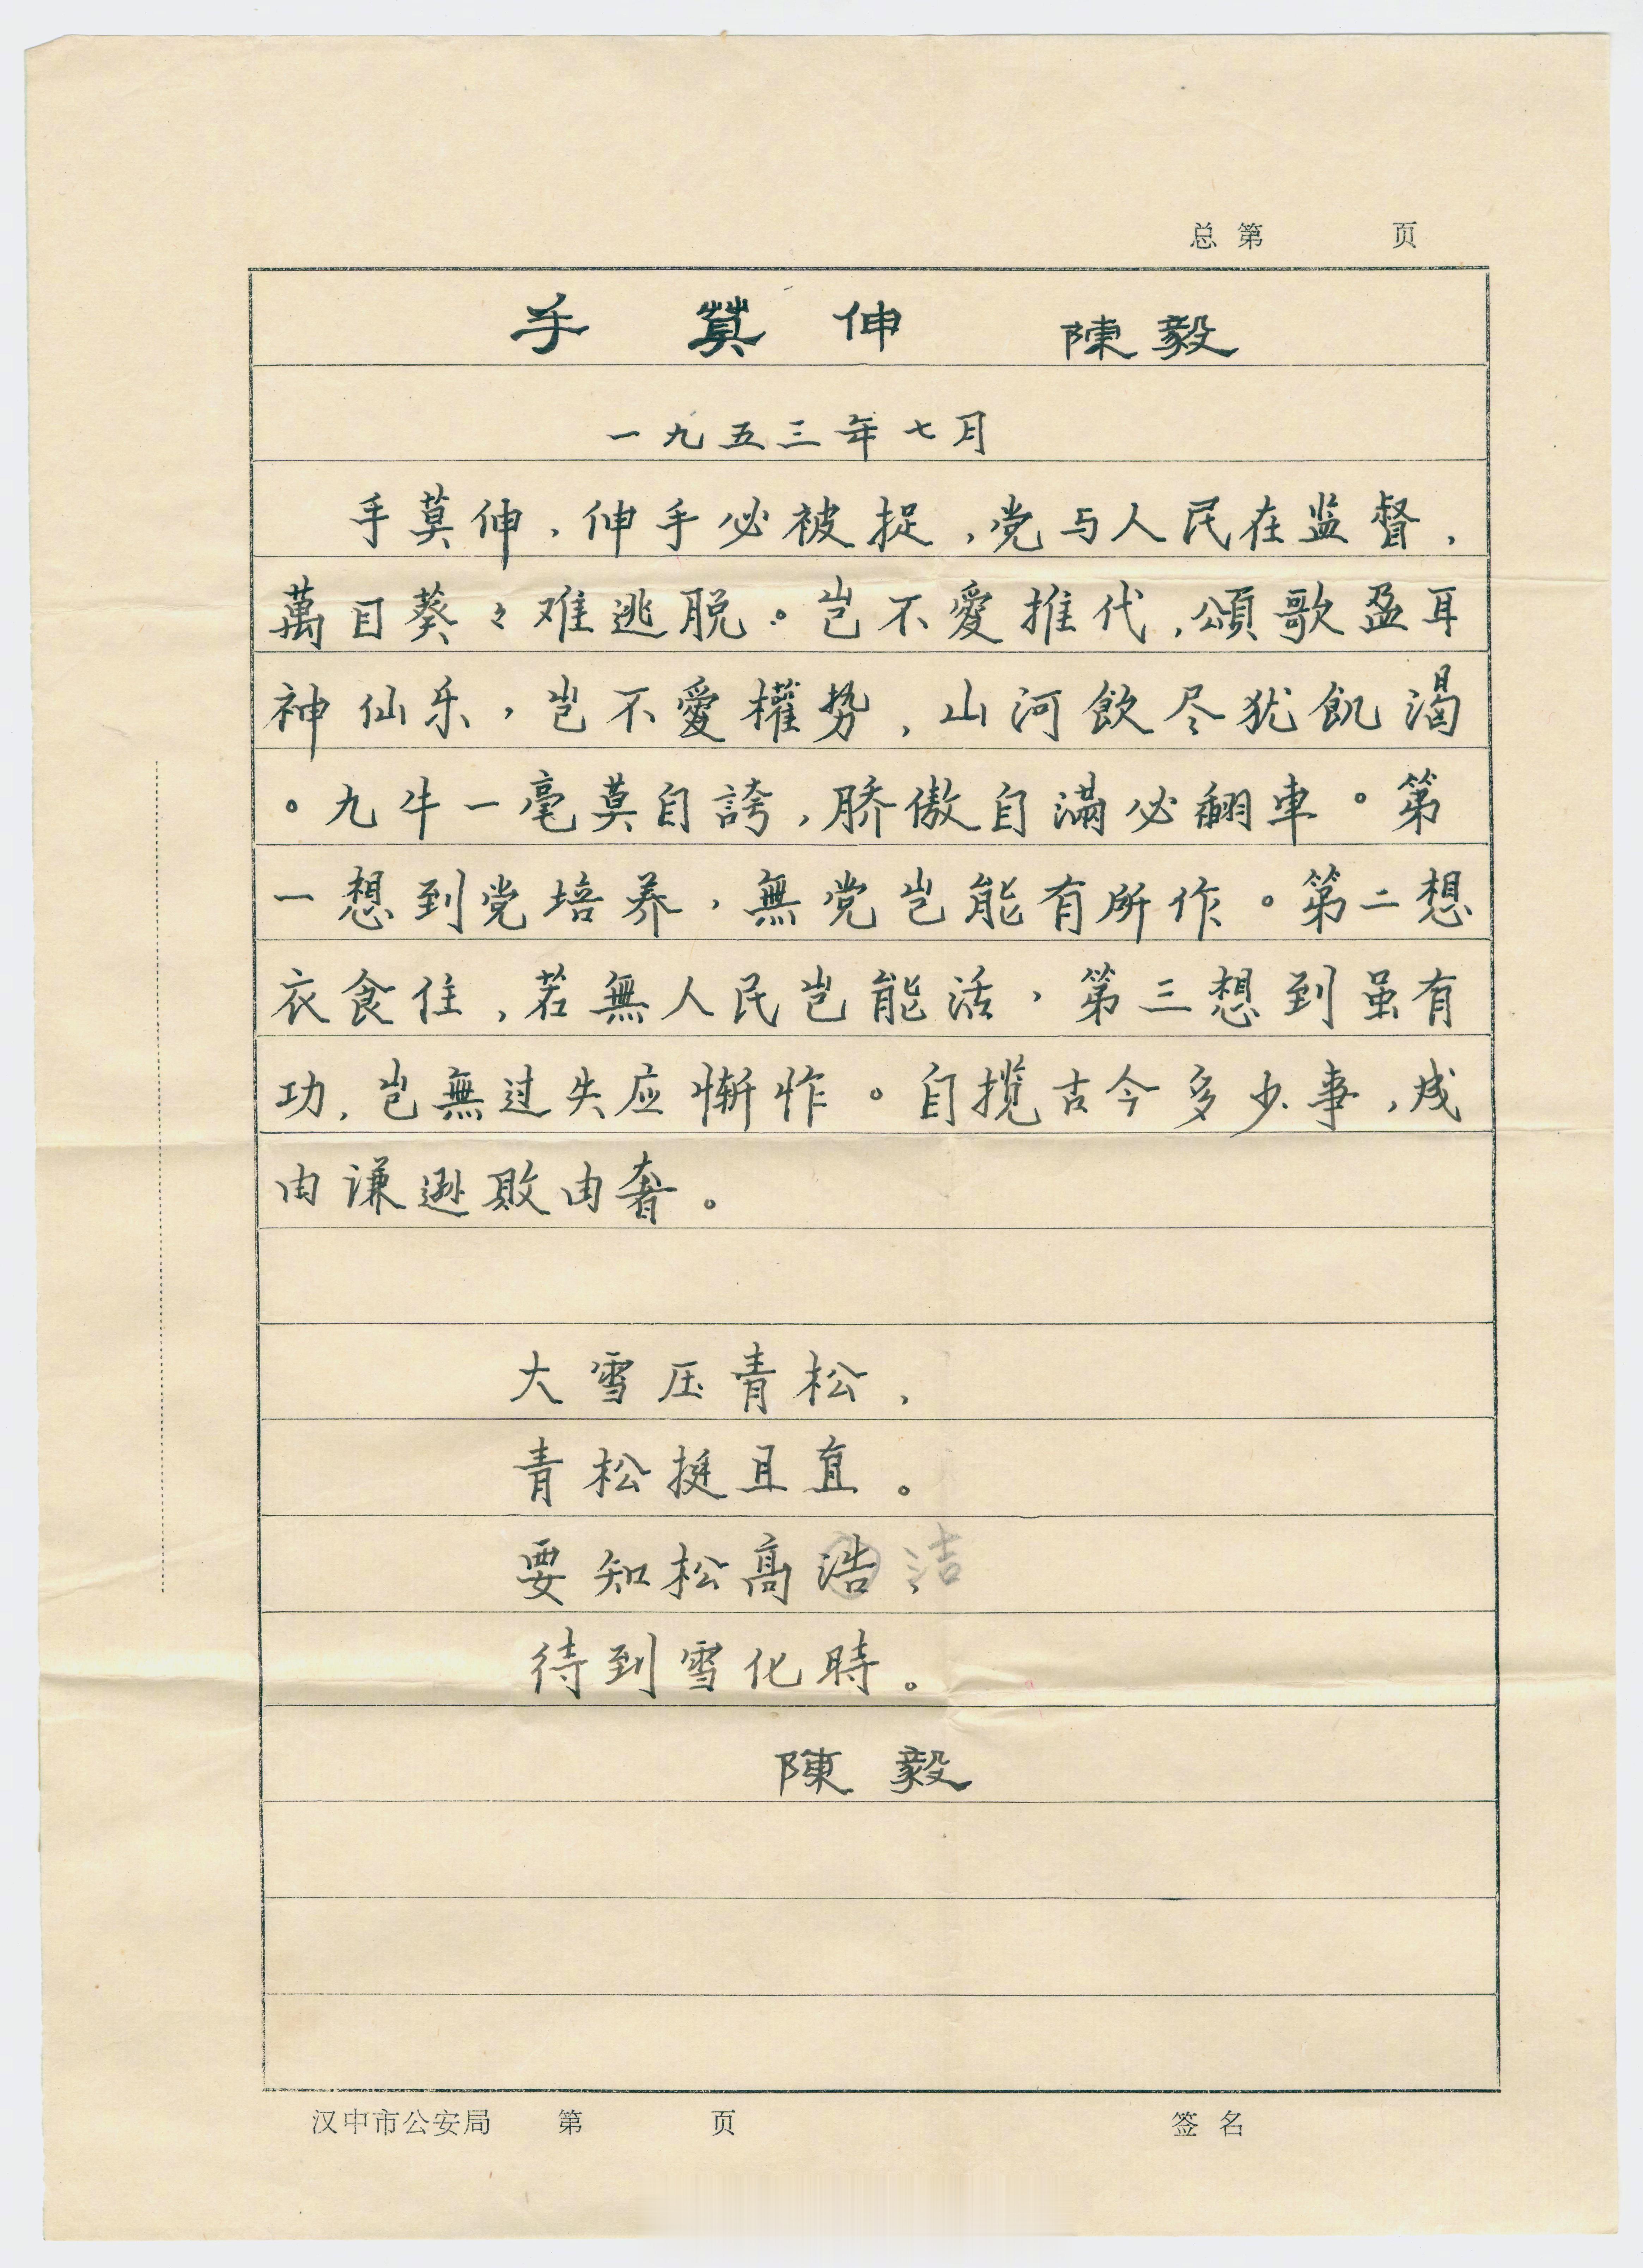 总第 页
手莫伸 陳毅
一九五三年七月
手莫伸，伸手必被捉，党与人民在监督，
萬目葵々难逃脱。岂不愛推代，頌歌盈耳
神仙乐，岂不愛權势，山河飲尽犹飢渴
。九牛一毫莫自誇，骄傲自滿必翻車。第
一想到党培养，無党岂能有所作。第二想
衣食住，若無人民岂能活，第三想到虽有
功，岂無过失应惭怍。自揽古今多少事，成
由谦逊敗由奢。
大雪压青松，
青松挺且直。
要知松高浩，洁
待到雪化時。
陳毅
汉中市公安局 第 页 签名